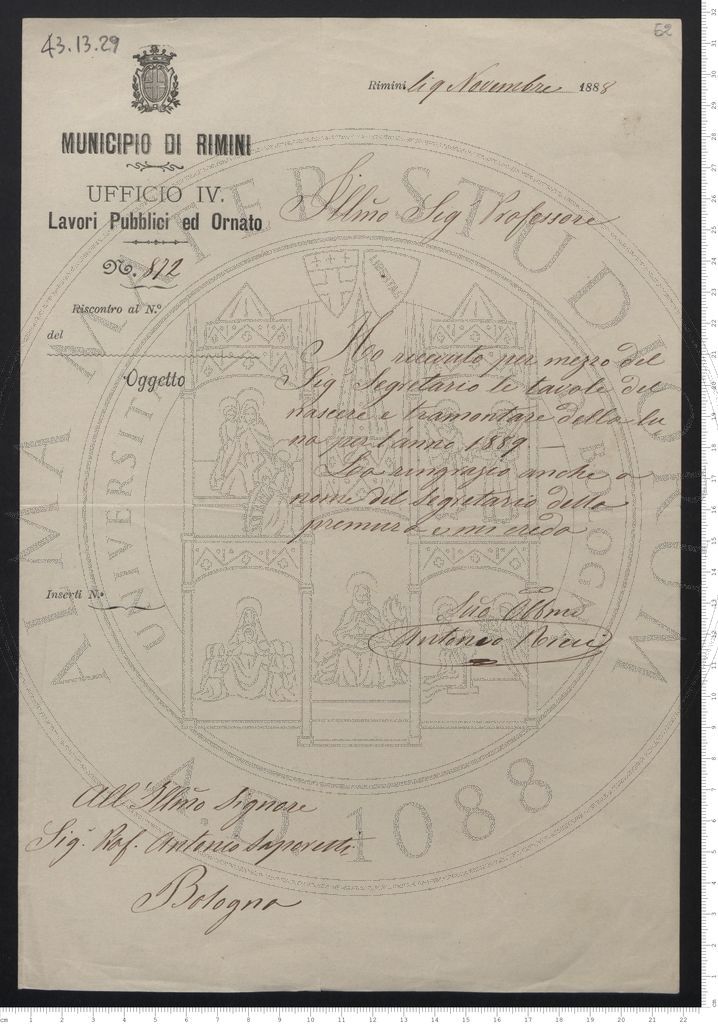 43.13.29
52
Rimini li 9 Novembre 1888
MUNICIPIO DI RIMINI
UFFICIO IV.
Lavori Pubblici ed Ornato
N. 812
Riscontro al N.º
del
Oggetto
Inserti N.º
Illmo Sig Professore
Ho ricevuto per mezzo del
Sig Segretario le tavole del
nascere e tramontare della lu
na per l'anno 1889 —
La ringrazio anche a
nome del segretario della
premura e mi credo
Suo Obbmo
Antonio Ricci
All'Illmo Signore
Sig. Prof. Antonio Saporetti
Bologna
ALMA MATER STUDIORUM
UNIVERSITA
BOLOGNA
LIBERTAS
A.D. 1088